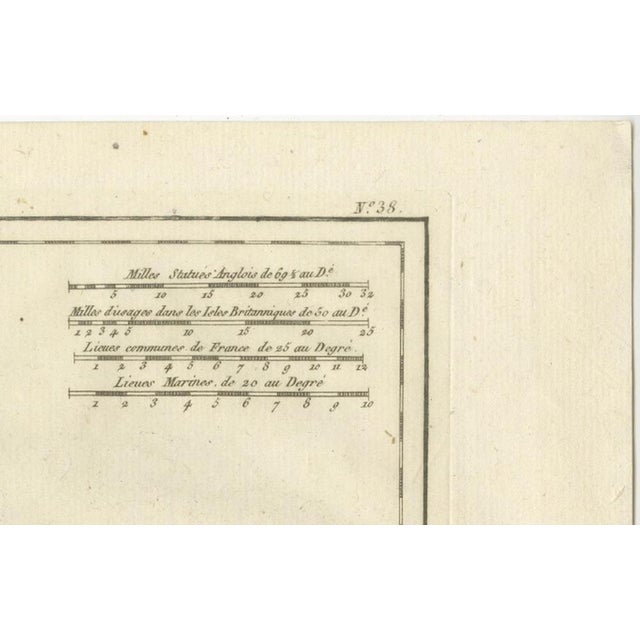 N.º 38.
Milles Statués Anglois de 69 ½ au D.é
5 10 15 20 25 30 32
Milles d'usages dans les Isles Britanniques de 50 au D.é
1 2 3 4 5 10 15 20 25
Lieues communes de France de 25 au Degré.
1 2 3 4 5 6 7 8 9 10 11 12
Lieues Marines de 20 au Degré
1 2 3 4 5 6 7 8 9 10